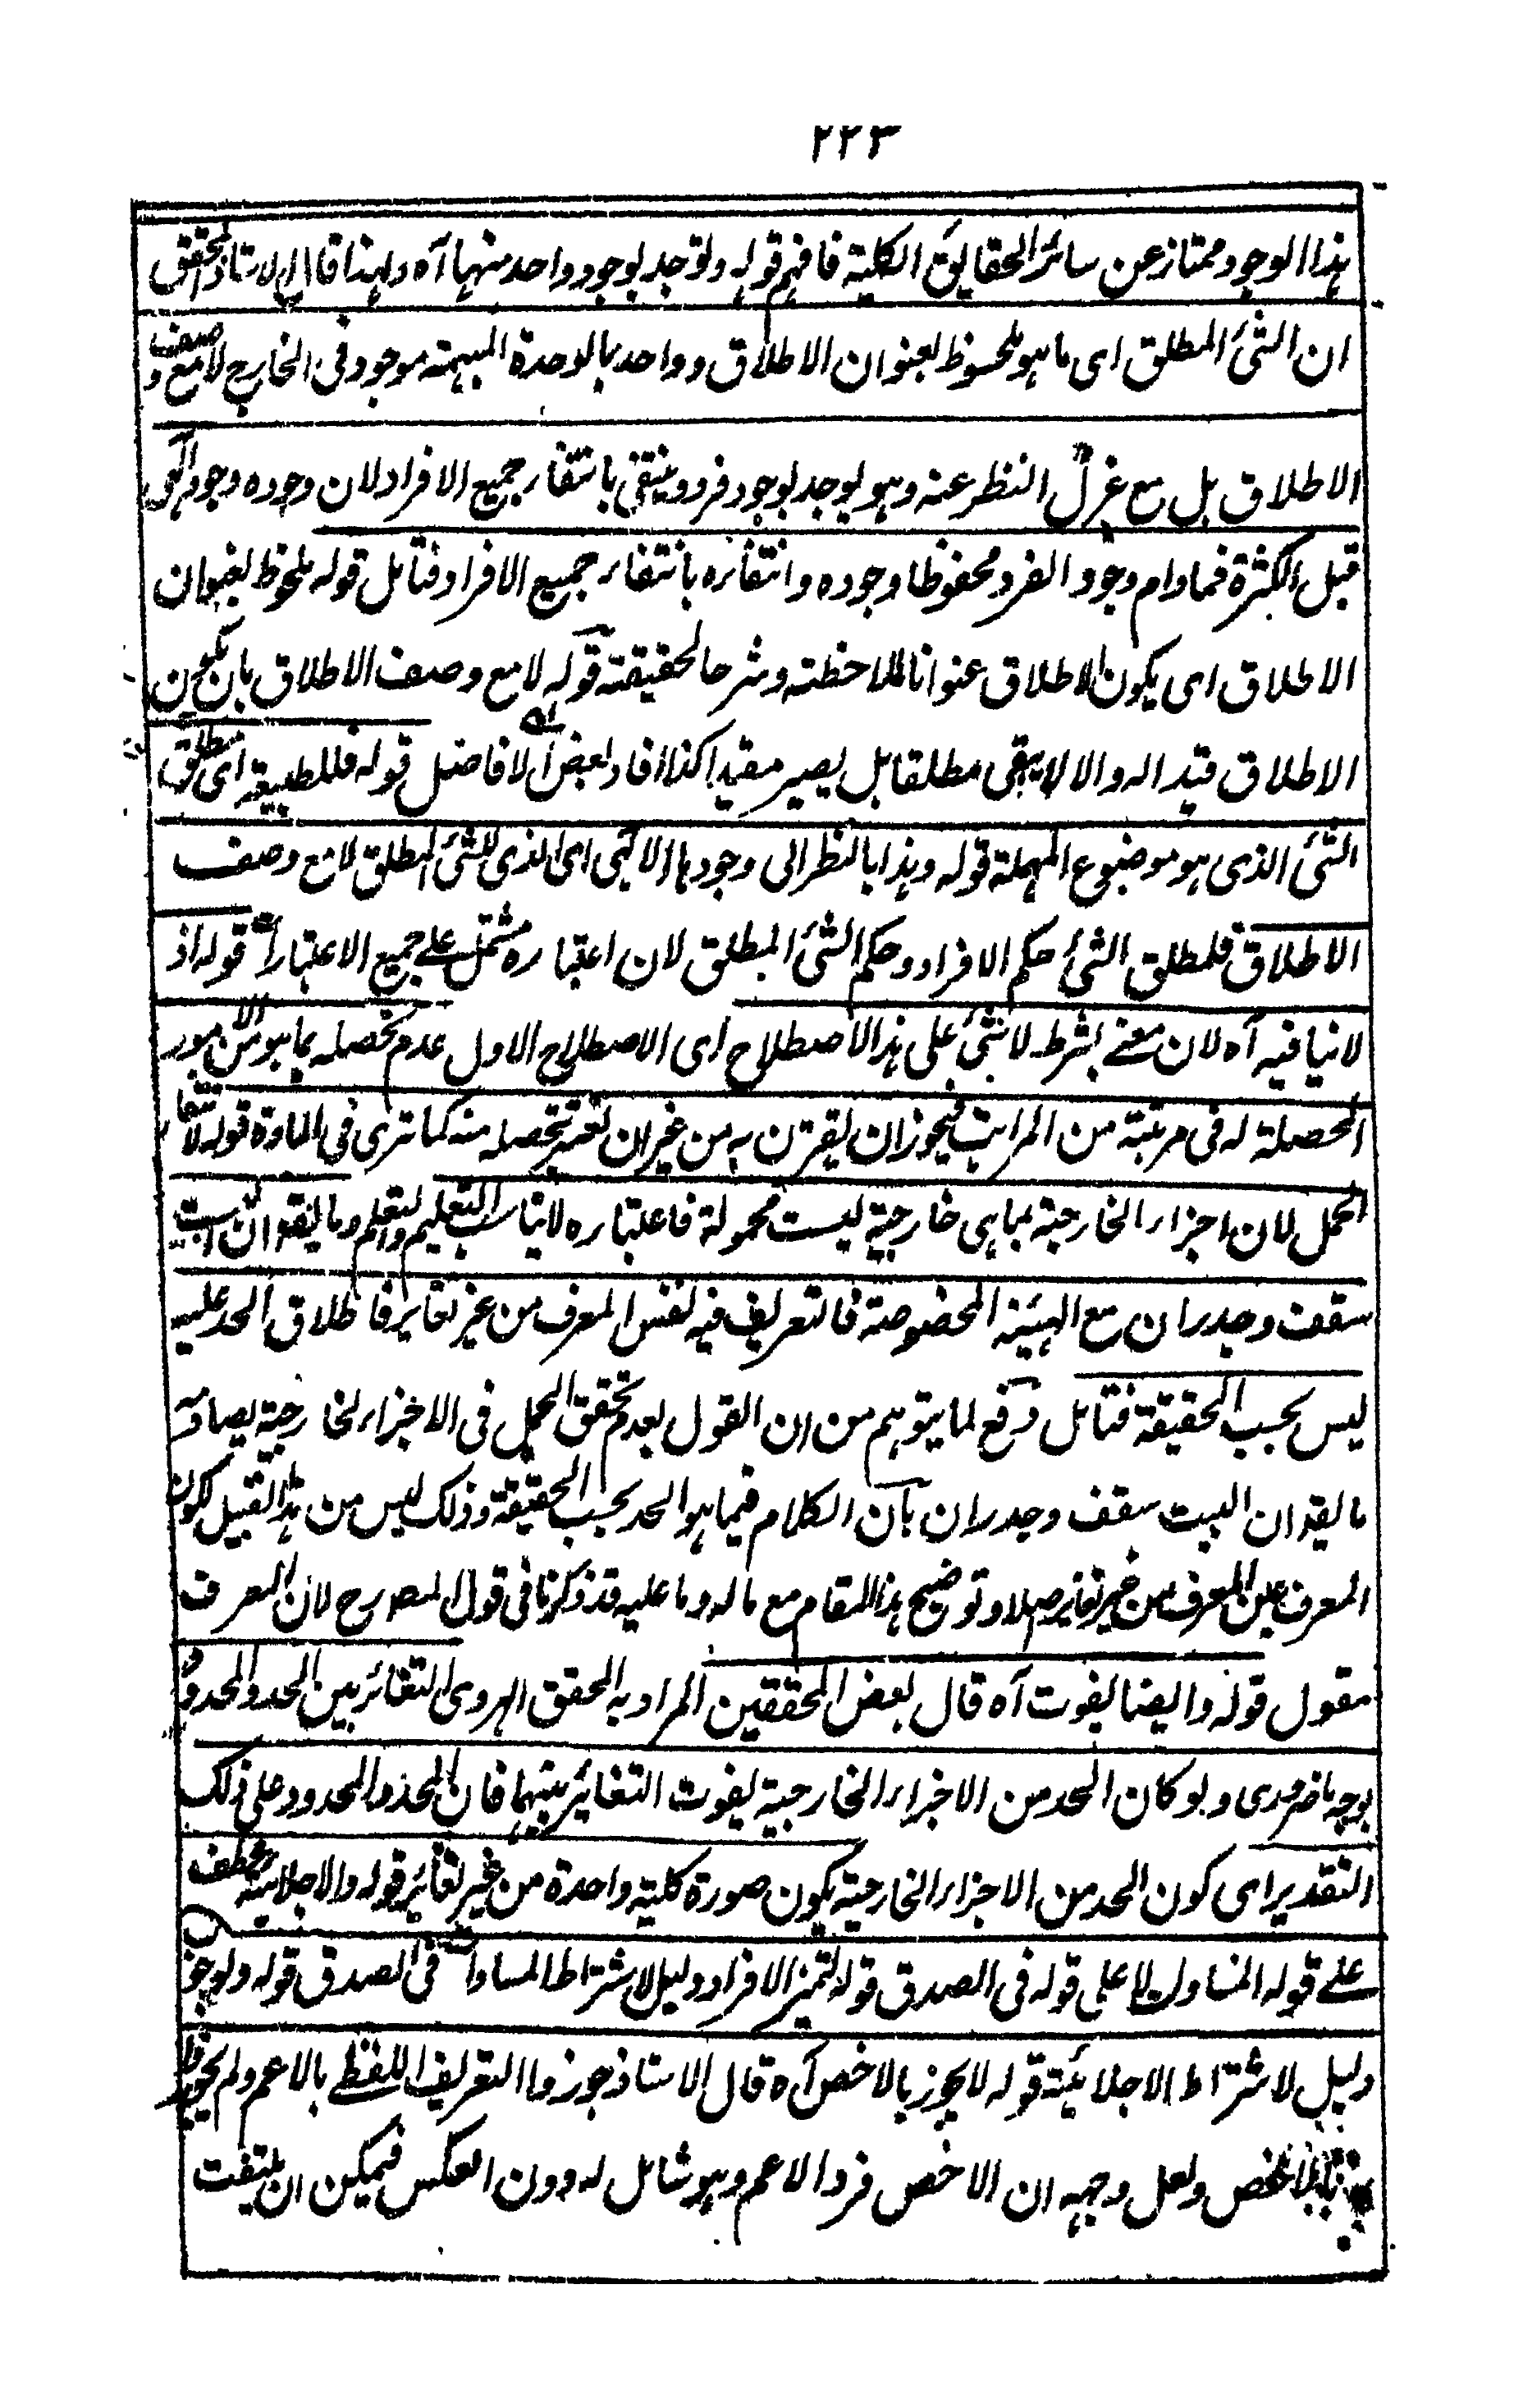 ٢٢٣
هذا الوجود ممتاز عن سائر الحقايق الكلية فافهم قوله ولتوجد بوجود واحد منها آه ولهذا قال الاستاذ المحقق
ان الشئ المطلق اى ما هو ملحوظ بعنوان الاطلاق وواحد بالوحدة المبهمة موجود فى الخارج لا مع وصف
الاطلاق بل مع عزل النظر عنه وهو يوجد بوجود فرد وينتفى بانتفاء جميع الافراد لان وجوده وجود الهى
قبل الكثرة فمادام وجود الفرد محفوظا وجوده وانتفائه بانتفاء جميع الافراد فتأمل قوله ملحوظ بعنوان
الاطلاق اى يكون الاطلاق عنوانا لملاحظته وشرحا لحقيقته قوله لا مع وصف الاطلاق بان يكون
الاطلاق قيدا له والا لا يبقى مطلقا بل يصير مقيدا كذا افاد بعض الافاضل قوله فللطبيعة اى مطلق
الشئ الذى هو موضوع المهملة قوله وهذا بالنظر الى وجودها الالهى اى الذى للشئ المطلق لا مع وصف
الاطلاق فلمطلق الشئ حكم الافراد وحكم الشئ المطلق لان اعتباره مشتمل على جميع الاعتبارات قوله اذ
لا ينافيه آه لان معنى بشرط لا شئ على هذا الاصطلاح اى الاصطلاح الاول عدم تحصله بما هو من الامور
المحصلة له فى مرتبة من المراتب فيجوز ان يقترن به من غير ان تعتبر تحصله منه كما ترى فى المادة قوله لانتفاء
الحمل لان اجزاء الخارجية بما هى خارجية ليست محمولة فاعتباره لا يناسب التعليم والتعلم وما يقوا ان البيت
سقف وجدران مع الهيئة المخصوصة فالتعريف فيه نفس المعرف من غير تغاير فاطلاق الحد عليه
ليس بحسب الحقيقة فتأمل دفع لما يتوهم من ان القول بعدم تحقق الحمل فى الاجزاء الخارجية يصادمه
ما يقوا ان البيت سقف وجدران بأن الكلام فيما هو الحد بحسب الحقيقة وذلك ليس من هذا القبيل لكون
المعرف عين المعرف من غير تغاير اصلا وتوضيح هذا المقام مع ما له وما عليه قد ذكرنا فى قول المصرح لان المعرف
مقول قوله وايضا يفوت آه قال بعض المحققين المراد به المحقق الهروى التغائر بين الحد والمحدود
بوجه ما ضرورى ولو كان الحد من الاجزاء الخارجية يفوت التغائر بينهما فان الحد والمحدود على ذلك
التقدير اى كون الحد من الاجزاء الخارجية يكون صورة كلية واحدة من غير تغائر قوله والاجلائية عطف
على قوله المساواة لا على قوله فى الصدق قوله لتميز الافراد دليل لاشتراط المساوات فى الصدق قوله ولوجوز
دليل لاشتراط الاجلائية قوله لا يجوز بالاخص آه قال الاستاذ جوزوا التعريف اللفظى بالاعم ولم يجوزوا
بالاخص ولعل وجهه ان الاخص فرد الاعم وهو شامل له دون العكس فيمكن ان يلتفت